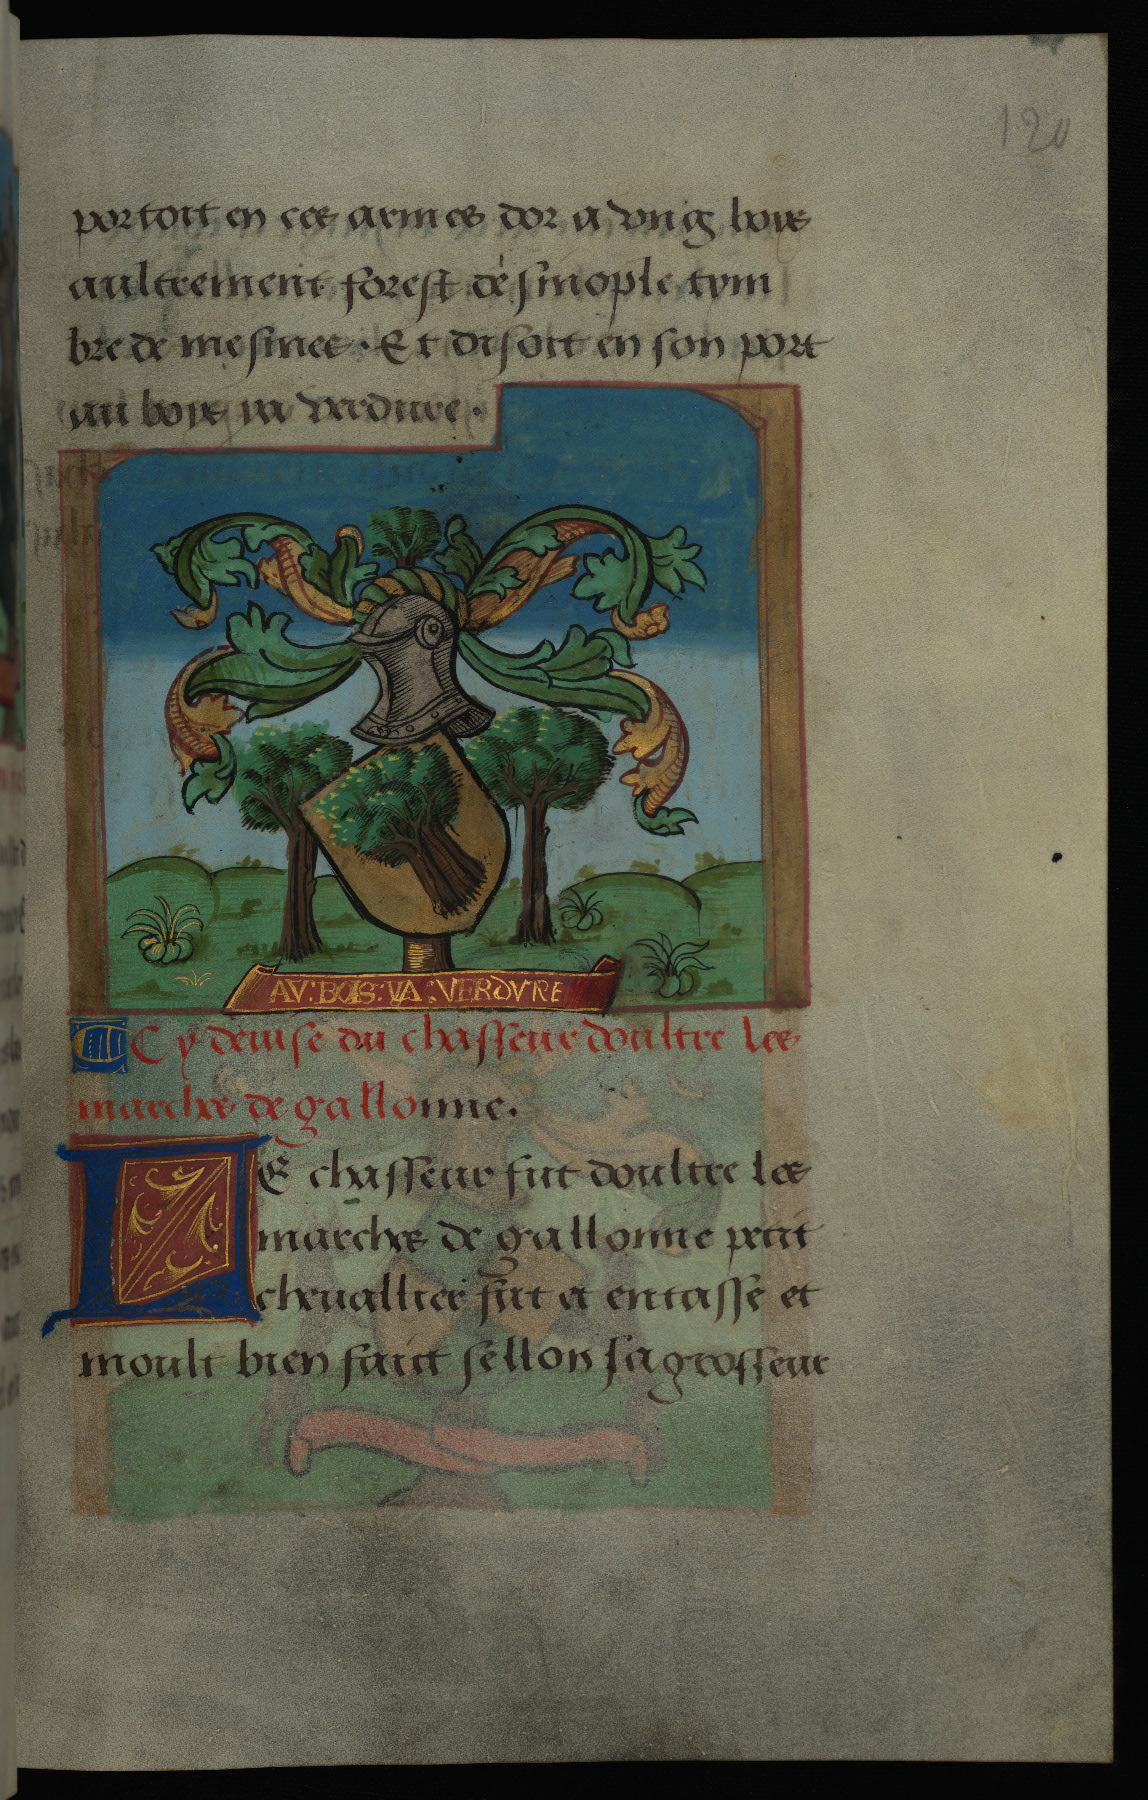 120
portoit en ces armes dor a vng bois
aultrement forest de sinople tym
bre de mesmes. Et disoit en son port
au bois va verdure.
AV: BOIS: VA: VERDVRE
Cy deuise du chasseur doultre les
marches de gallonne.
LE chasseur fut doultre les
marches de gallonne petit
cheuallier fut et entasse et
moult bien faict sellon sa grosseur